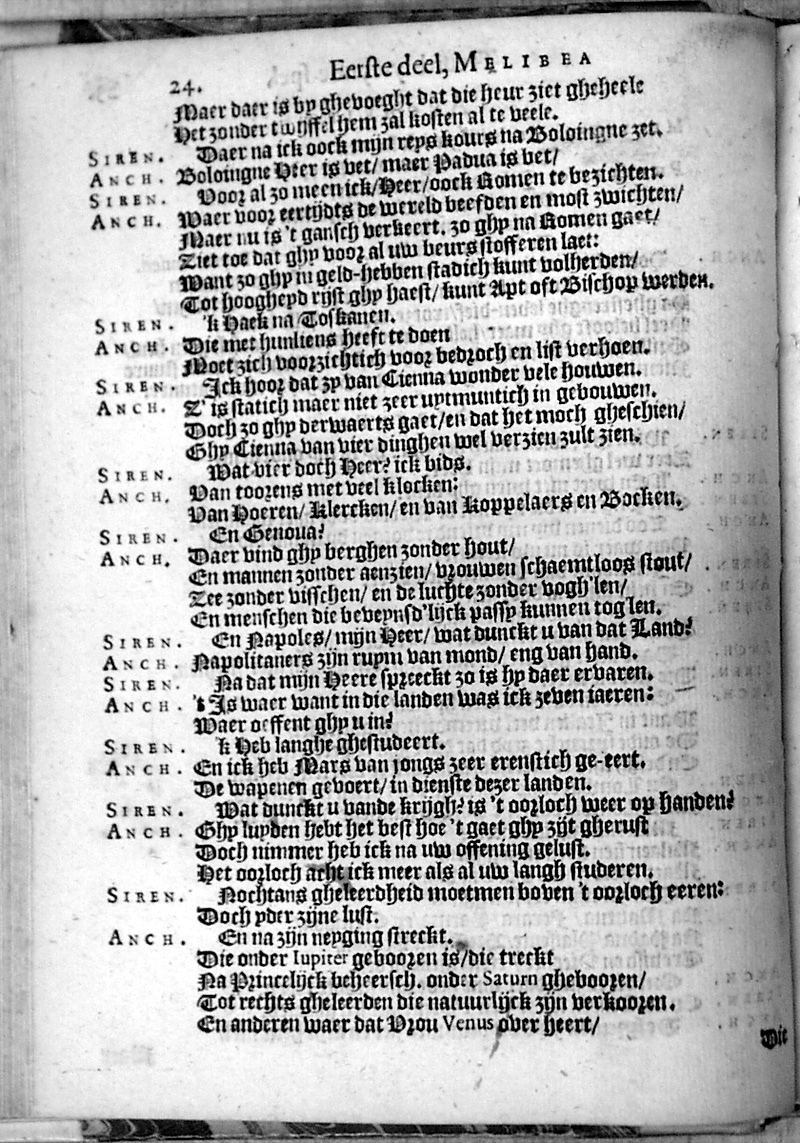 24. Eerste deel, MELIBEA
Maer daer is by ghevoeght dat die heur ziet gheheele
Het zonder twijffel hem zal kosten al te veele.
SIREN. Daer na ick oock mijn reys kours na Boloingne zet.
ANCH. Boloingne Heer is vet/ maer Padua is vet/
SIREN. Voor al zo meen ick/Heer/oock Romen te bezichten.
ANCH. Waer voor eertijdts de wereld beefden en most zwichten/
Maer nu is 't gansch verkeert. zo ghy na Romen gaet/
Ziet toe dat ghy voor al uw beurs stofferen laet:
Want zo ghy in geld-hebben stadich kunt volherden/
Tot hoogheyd rijst ghy haest/ kunt Apt oft Bischop werden.
SIREN. 'k Haek na Toskanen.
ANCH. Die met hunliens heeft te doen
Moet zich voorzichtich voor bedroch en list verhoen.
SIREN. Ick hoor dat zy van Cienna wonder vele houwen.
ANCH. T' is statich maer niet zeer uytmuntich in gebouwen.
Doch zo ghy derwaerts gaet/en dat het moch gheschien/
Ghy Cienna van vier dinghen wel verzien zult zien.
SIREN. Wat vier doch Heer? ick bids.
ANCH. Van toorens met veel klocken:
Van Hoeren/ Klercken/ en van Koppelaers en Bocken.
SIREN. En Genova?
ANCH. Daer vind ghy berghen zonder hout/
En mannen zonder aenzien/ vrouwen schaemtloos stout/
Zee zonder visschen/ en de luchte zonder vogh'len/
En menschen die beveynsd'lijck passy kunnen tog'len.
SIREN. En Napoles/ mijn Heer/ wat dunckt u van dat Land?
ANCH. Napolitaners zijn ruym van mond/ eng van hand.
SIREN. Na dat mijn Heere spreeckt zo is hy daer ervaren.
ANCH. 't Is waer want in die landen was ick zeven iaeren:
Waer oeffent ghy u in?
SIREN. 'k Heb langhe ghestudeert.
ANCH. En ick heb Mars van jongs zeer erenstich ge-eert.
De wapenen gevoert/ in dienste dezer landen.
SIREN. Wat dunckt u vande krijgh? is 't oorloch weer op handen?
ANCH. Ghy luyden hebt het best hoe 't gaet ghy zijt gherust
Doch nimmer heb ick na uw offening gelust.
Het oorloch acht ick meer als al uw langh studeren.
SIREN. Nochtans gheleerdheid moetmen boven 't oorloch eeren:
Doch yder zijne lust.
ANCH. En na zijn neyging streckt.
Die onder Iupiter gebooren is/die treckt
Na Princelijck beheersch. onder Saturn ghebooren/
Tot rechts gheleerden die natuurlijck zijn verkooren.
En anderen waer dat Vrou Venus over heert/
Dit